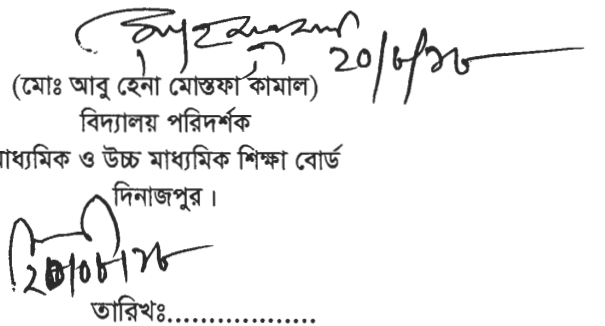 ২০/৮/১৮
(মোঃ আবু হেনা মোস্তফা কামাল)
বিদ্যালয় পরিদর্শক
মাধ্যমিক ও উচ্চ মাধ্যমিক শিক্ষা বোর্ড
দিনাজপুর।
তারিখঃ..................